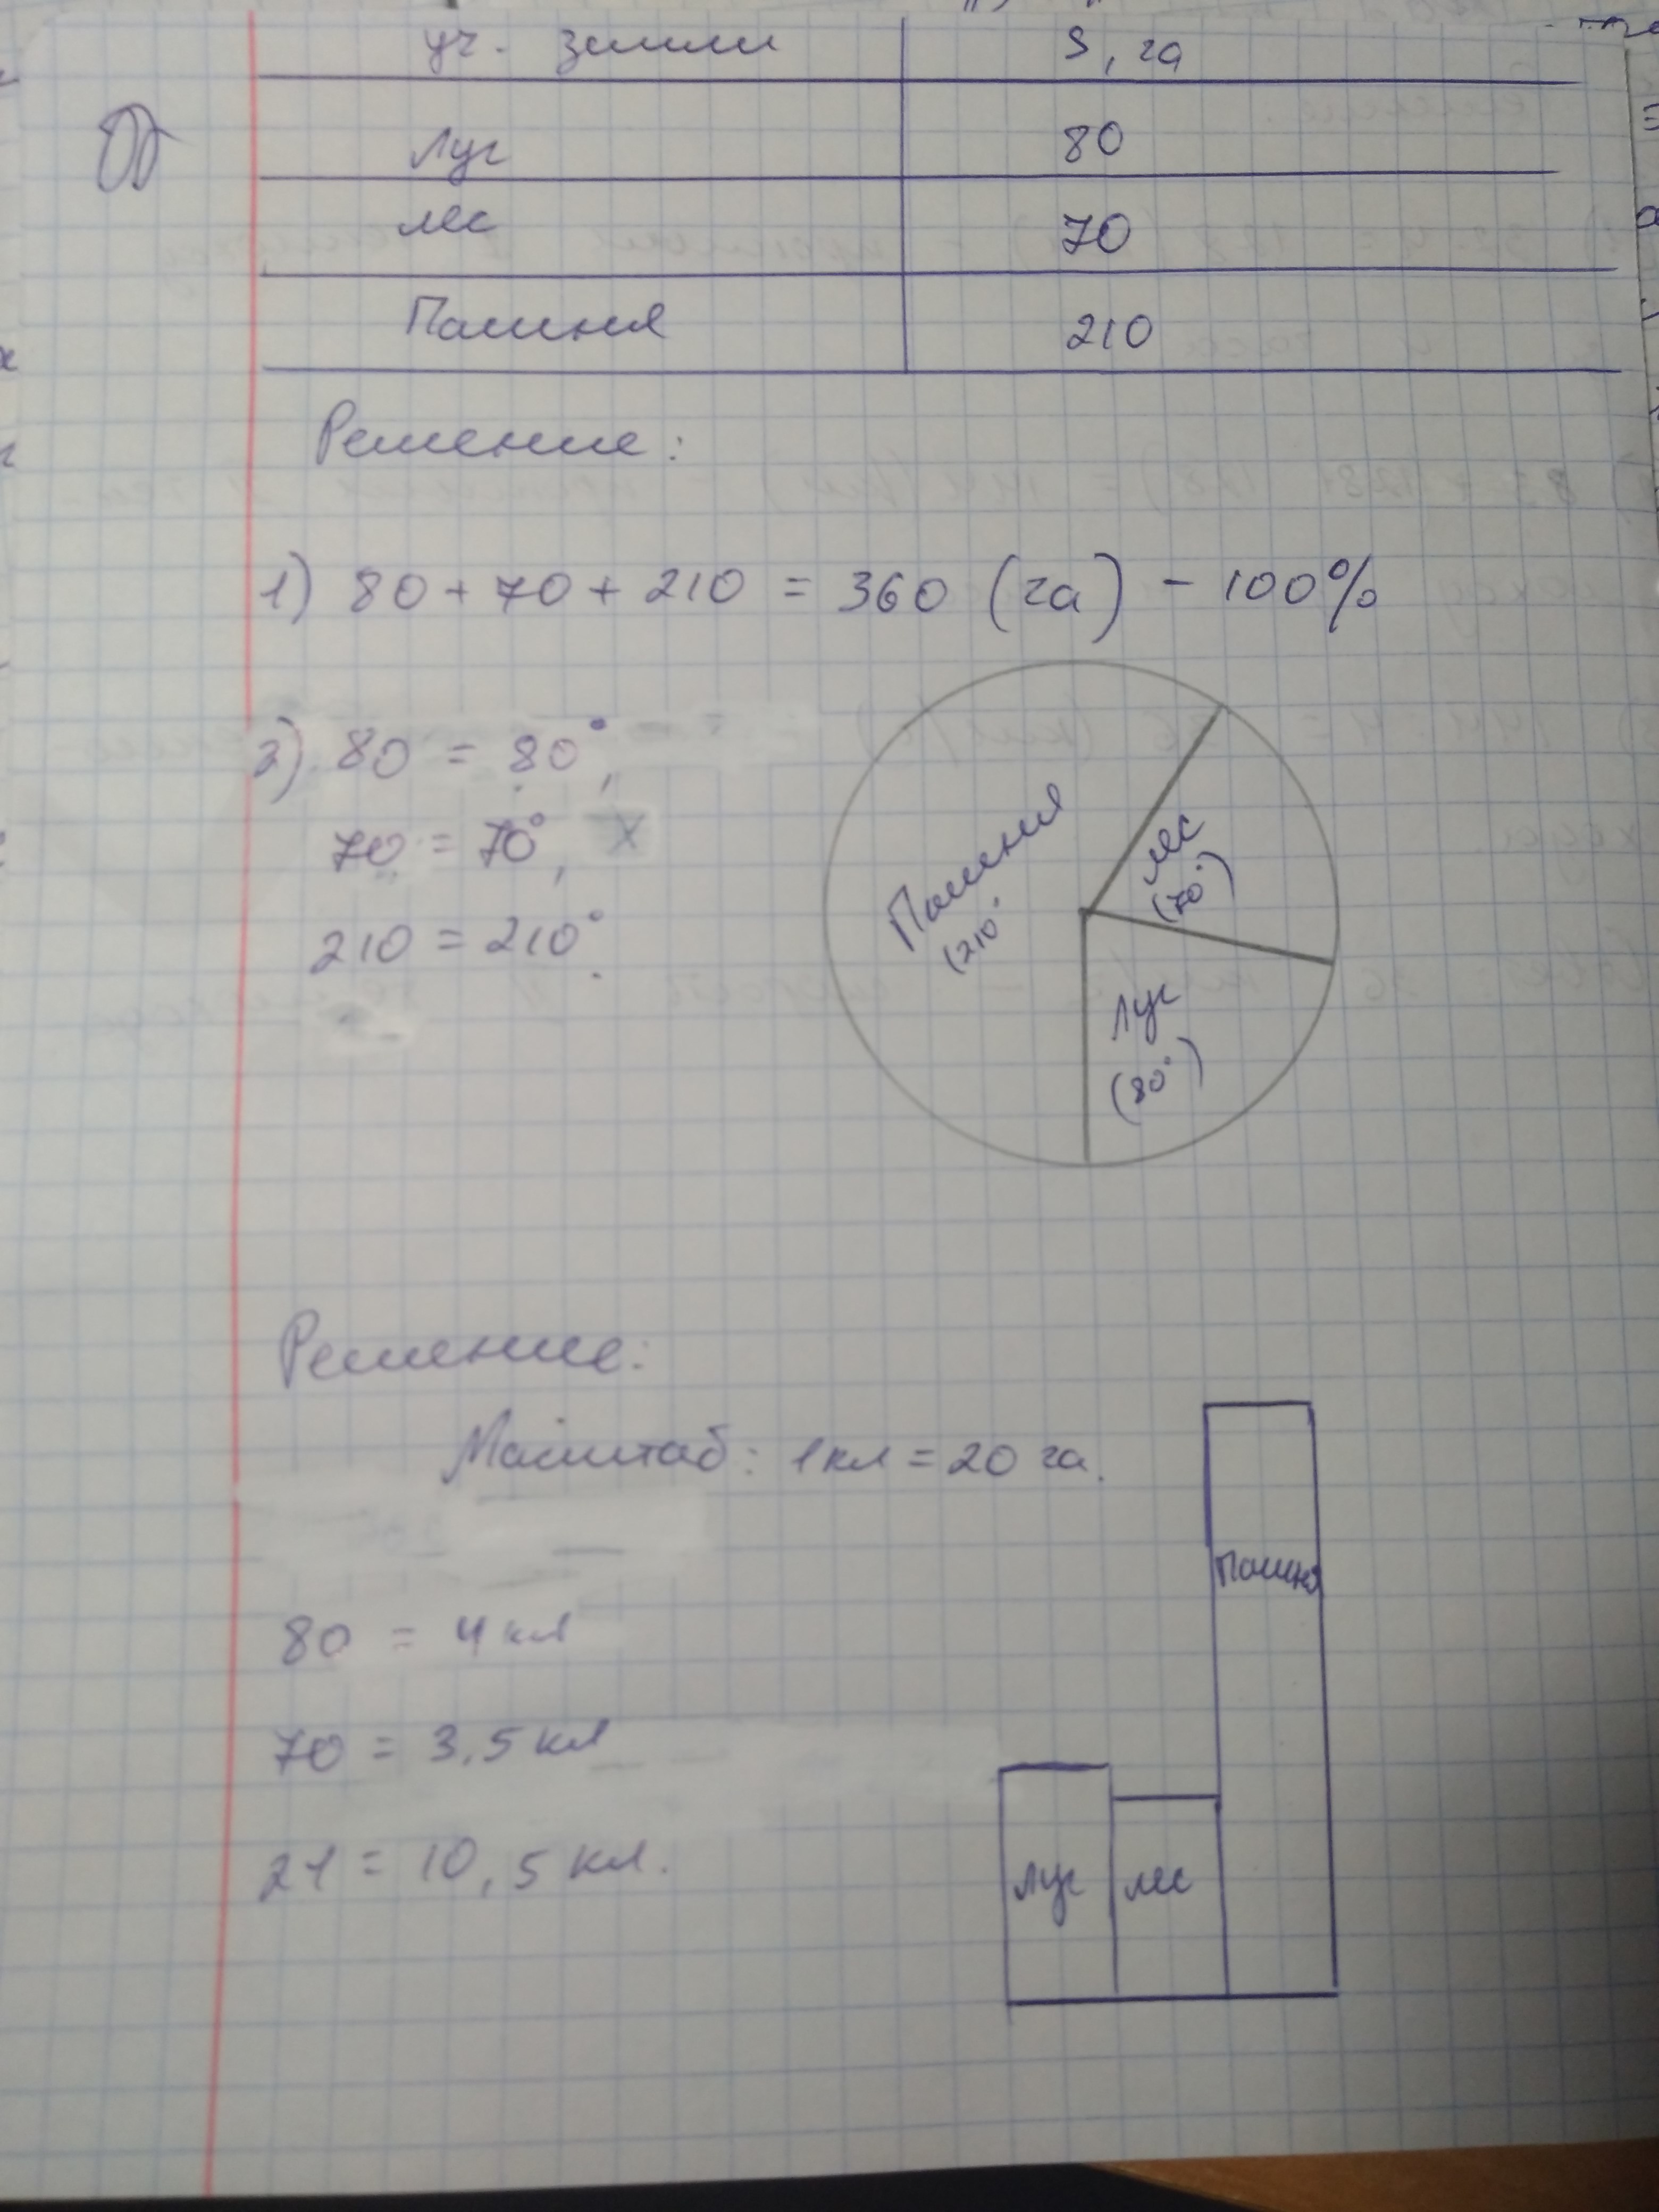 уч. земли S, га
Луг 80
лес 70
Пашня 210
Решение:
1) 80 + 70 + 210 = 360 (га) - 100%
2) 80 = 80°,
70 = 70°,
210 = 210°.
Пашня
(210°
лес
(70°)
Луг
(80°)
Решение:
Масштаб: 1 кл = 20 га.
80 = 4 кл
70 = 3,5 кл
21 = 10,5 кл.
Пашня
Луг лес